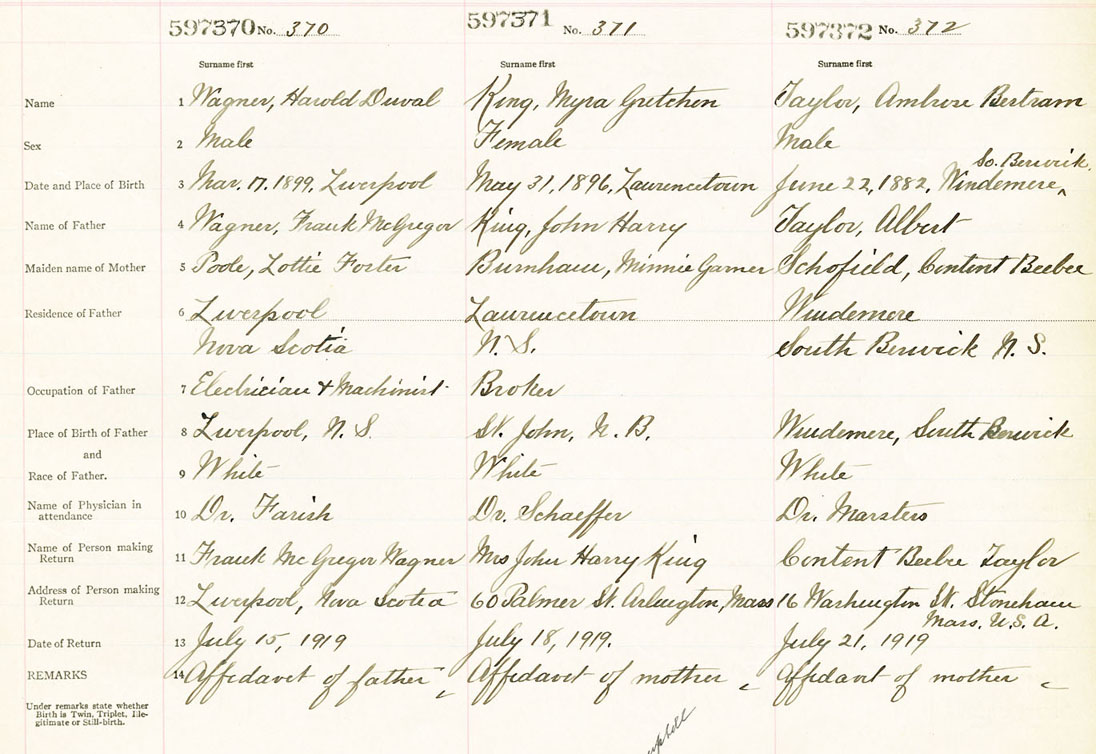 597370 No. 370 597371 No. 371 597372 No. 372
Surname first Surname first Surname first
Name 1 Wagner, Harold Duval King, Myra Gretchen Taylor, Ambrose Bertram
Sex 2 Male Female Male
So. Berwick.
Date and Place of Birth 3 Mar. 17. 1899, Liverpool May 31, 1896, Laurencetown June 22, 1882, Windemere,
Name of Father 4 Wagner, Frank McGregor King, John Harry Taylor, Albert
Maiden name of Mother 5 Poole, Lottie Forter Burnham, Minnie Garner Schofield, Content Beebee
Residence of Father 6 Liverpool Laurencetown Windemere
Nova Scotia N. S. South Berwick N. S.
Occupation of Father 7 Electrician & Machinist Broker
Place of Birth of Father 8 Liverpool, N. S. St. John, N. B. Windemere, South Berwick
and
Race of Father. 9 White White White
Name of Physician in
attendance 10 Dr. Farish Dr. Schaeffer Dr. Marsters
Name of Person making
Return 11 Frank McGregor Wagner Mrs John Harry King Content Beebe Taylor
Address of Person making
Return 12 Liverpool, Nova Scotia 60 Palmer St. Arlington, Mass 16 Washington St. Stoneham
Mass. U.S.A.
Date of Return 13 July 15, 1919 July 18, 1919. July 21, 1919
REMARKS 14 Affidavit of father Affidavit of mother Affidavit of mother
Under remarks state whether
Birth is Twin, Triplet, Ille-
gitimate or Still-birth.